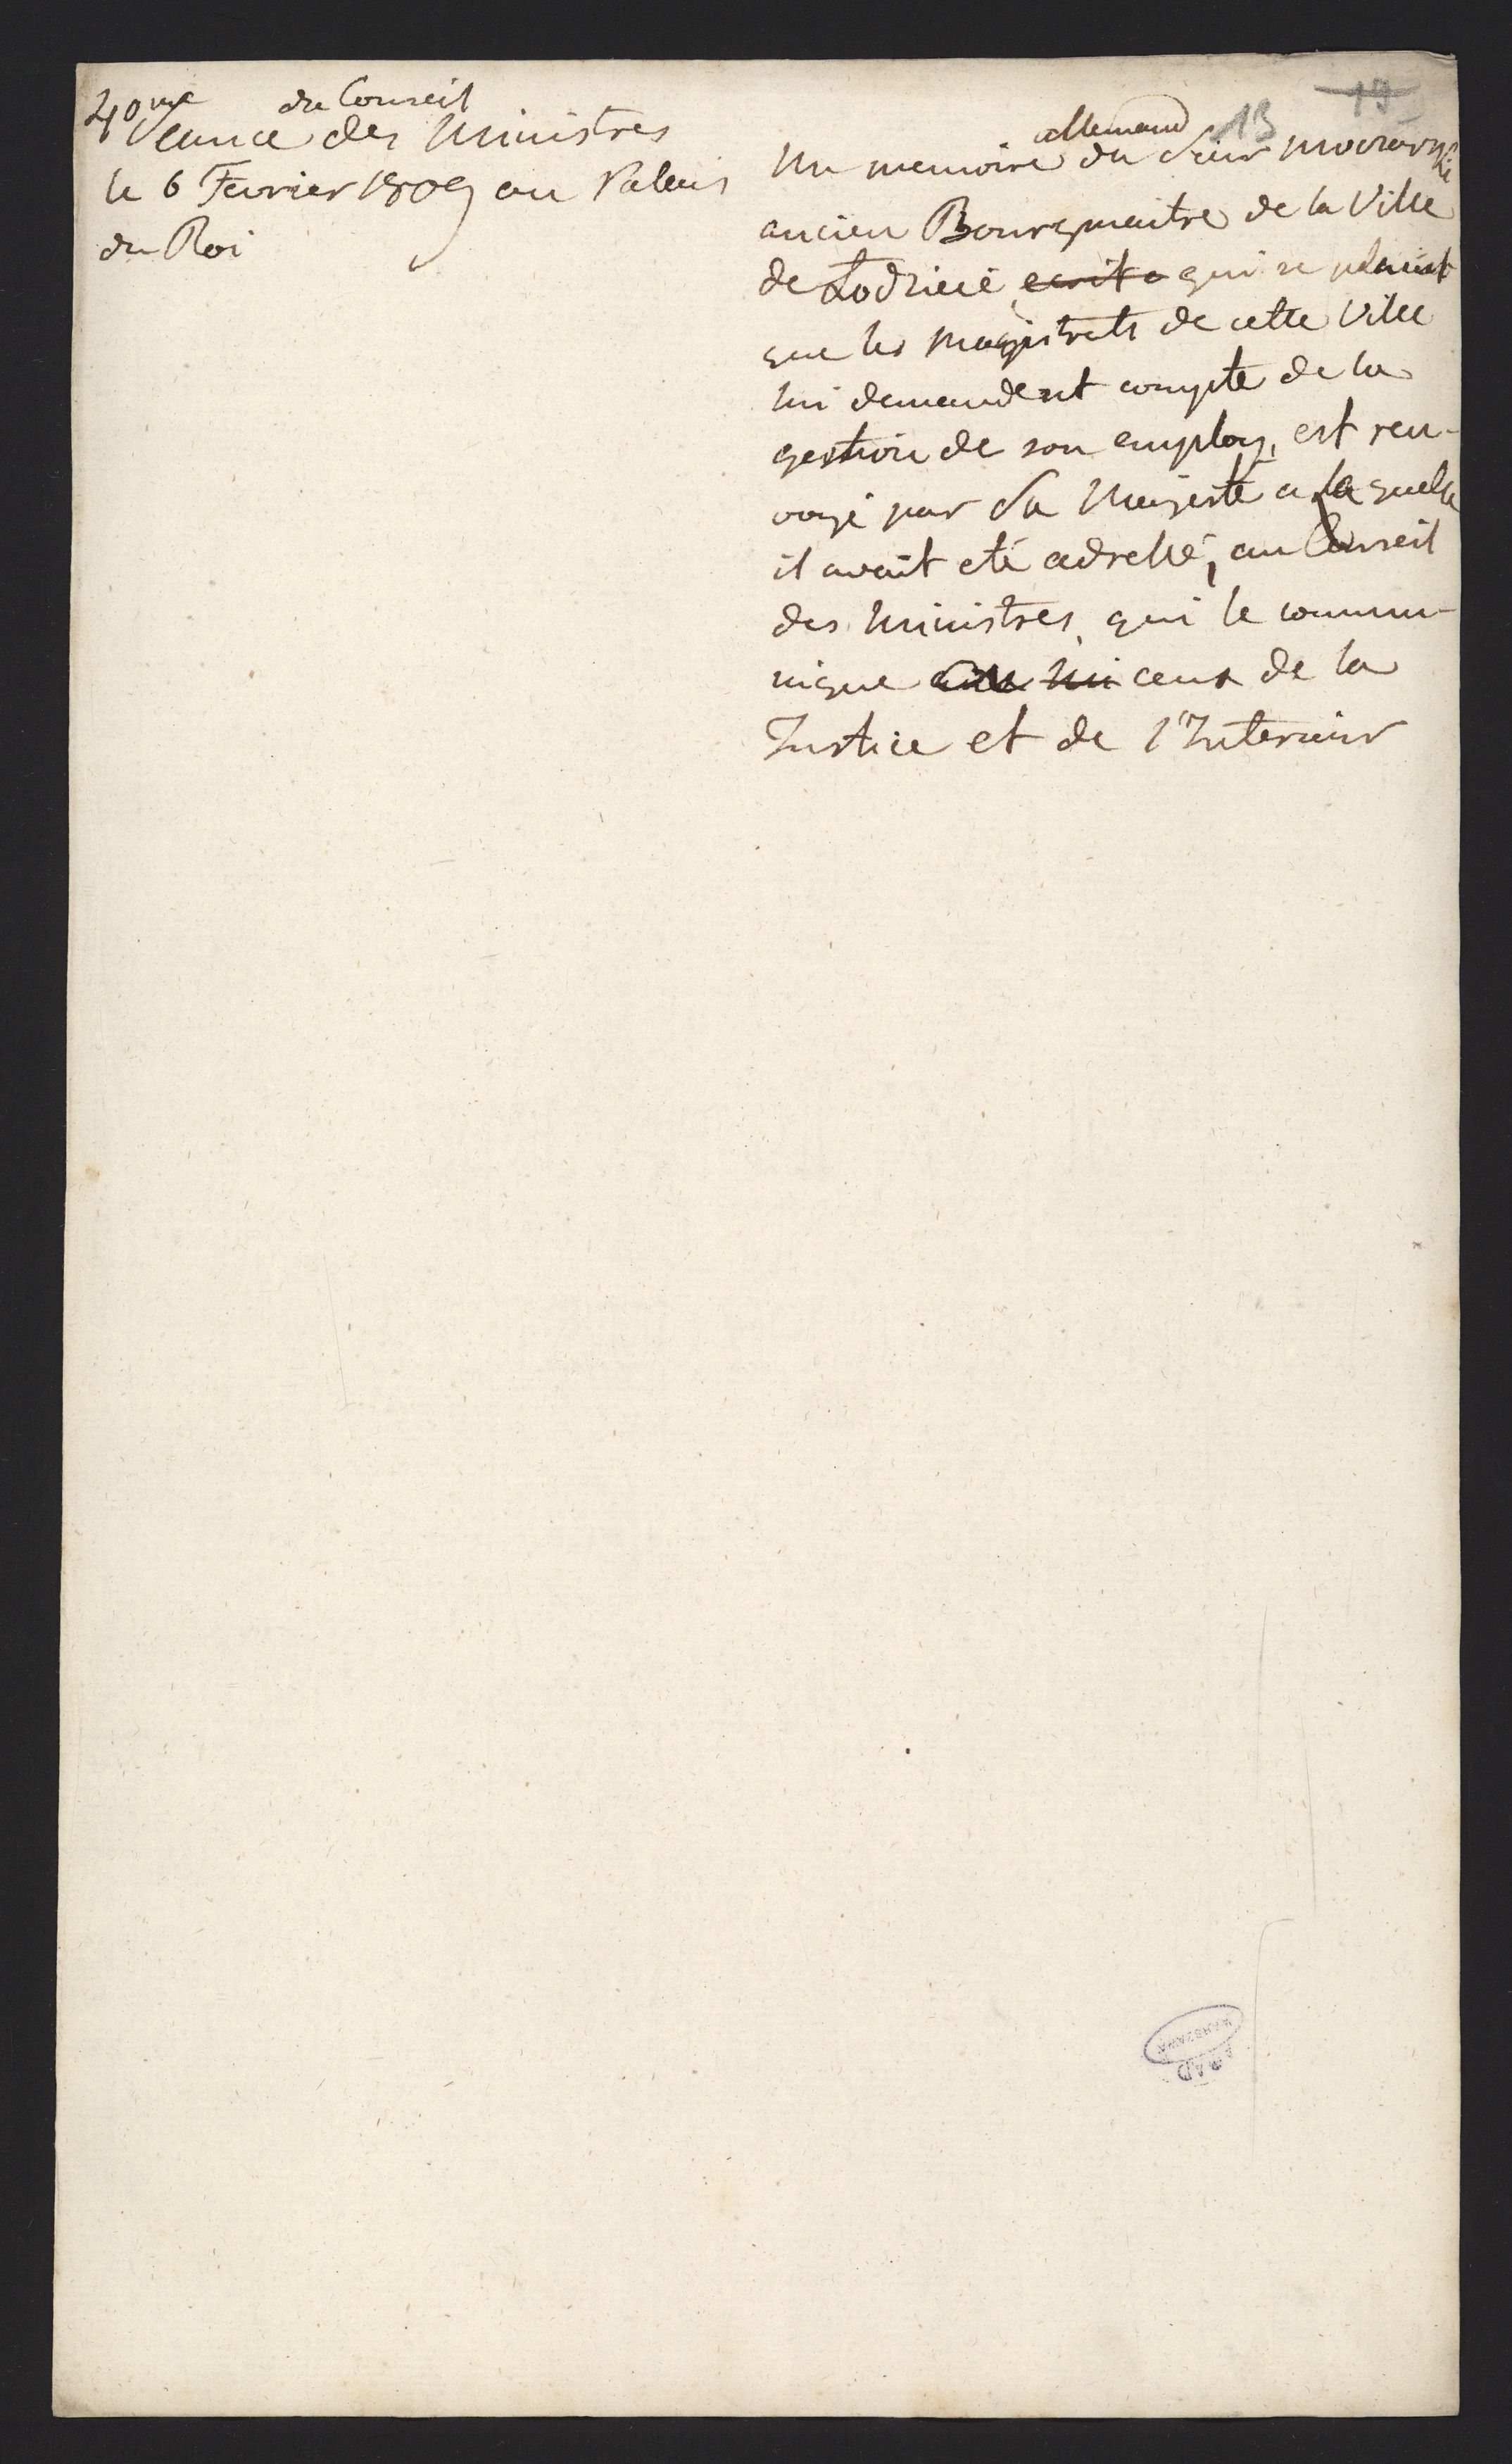 40me Seance du Conseil des Ministres
le 6 Fevrier 1809 au Palais
du Roi
13
19
Un memoire allemand du Sieur
ancien Bourgmaitre de la Ville
de ecrit a qui se plaint
que les magistrats de cette Ville
lui demandent compte de la
gestion de son employ, est ren-
voyé par Sa Majesté a la quelle
il avait eté adressé, au Conseil
des Ministres, qui le commu-
nique ceux de la
Justice et de l'Interieur
AGAD
WARSZAWA